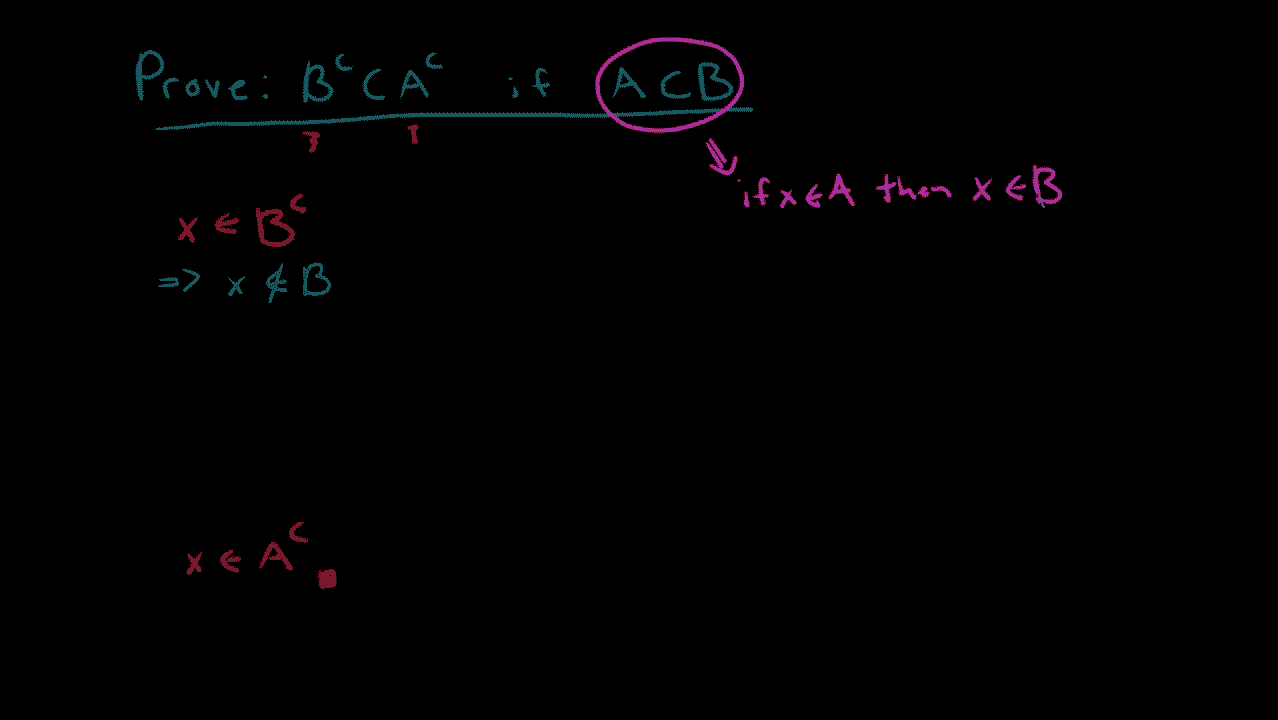 Prove: Bᶜ ⊂ Aᶜ if A ⊂ B
if x ∈ A then x ∈ B
x ∈ Bᶜ
=> x ∉ B
x ∈ Aᶜ